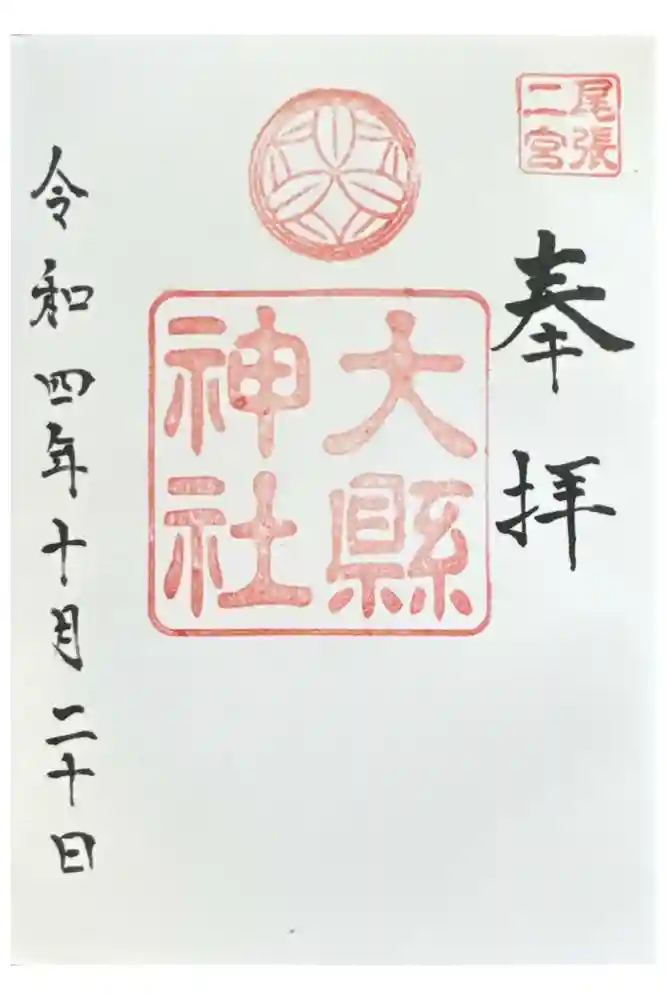 尾張
二宮
奉拝
大縣
神社
令和四年十月二十日